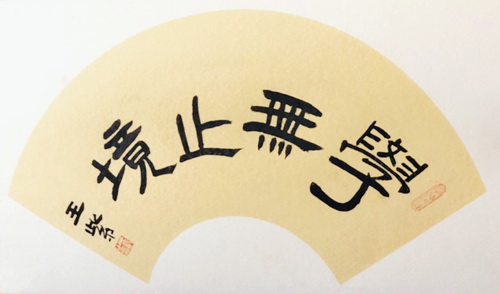 學無止境
王